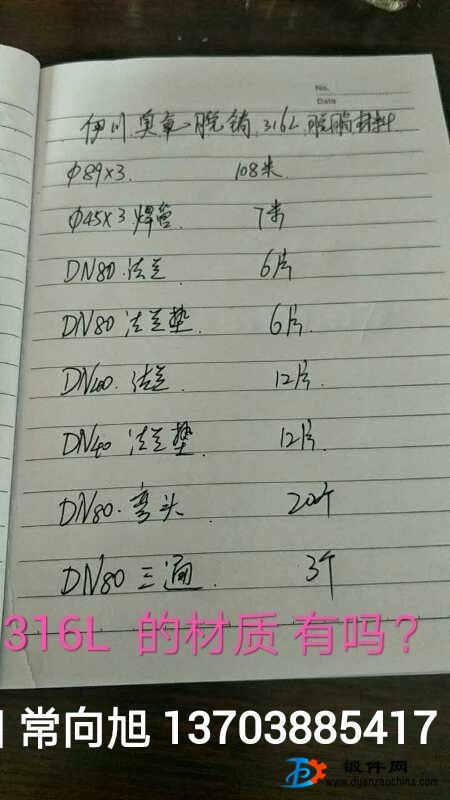 No.
Date
伊川奥章脱硝 316L 脱脂材料
φ89×3. 108米
φ45×3焊管. 7米
DN80.法兰 6片
DN80 法兰垫. 6片.
DN40.法兰. 12片.
DN40 法兰垫. 12片.
DN80.弯头 20个
DN80三通. 3个
316L 的材质 有吗？
常向旭 13703885417
锻件网
www.duanzaochina.com